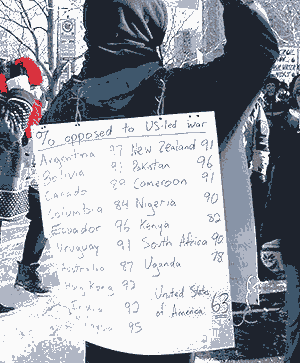 % opposed to US-led war
Argentina 97 New Zealand 91
Bolivia 91 Pakistan 96
Canada 89 Cameroon 91
Columbia 84 Nigeria 90
Ecuador 96 Kenya 82
Uruguay 91 South Africa 90
Australia 87 Uganda 78
Hong Kong 92
India 92 United States
of America 63
95